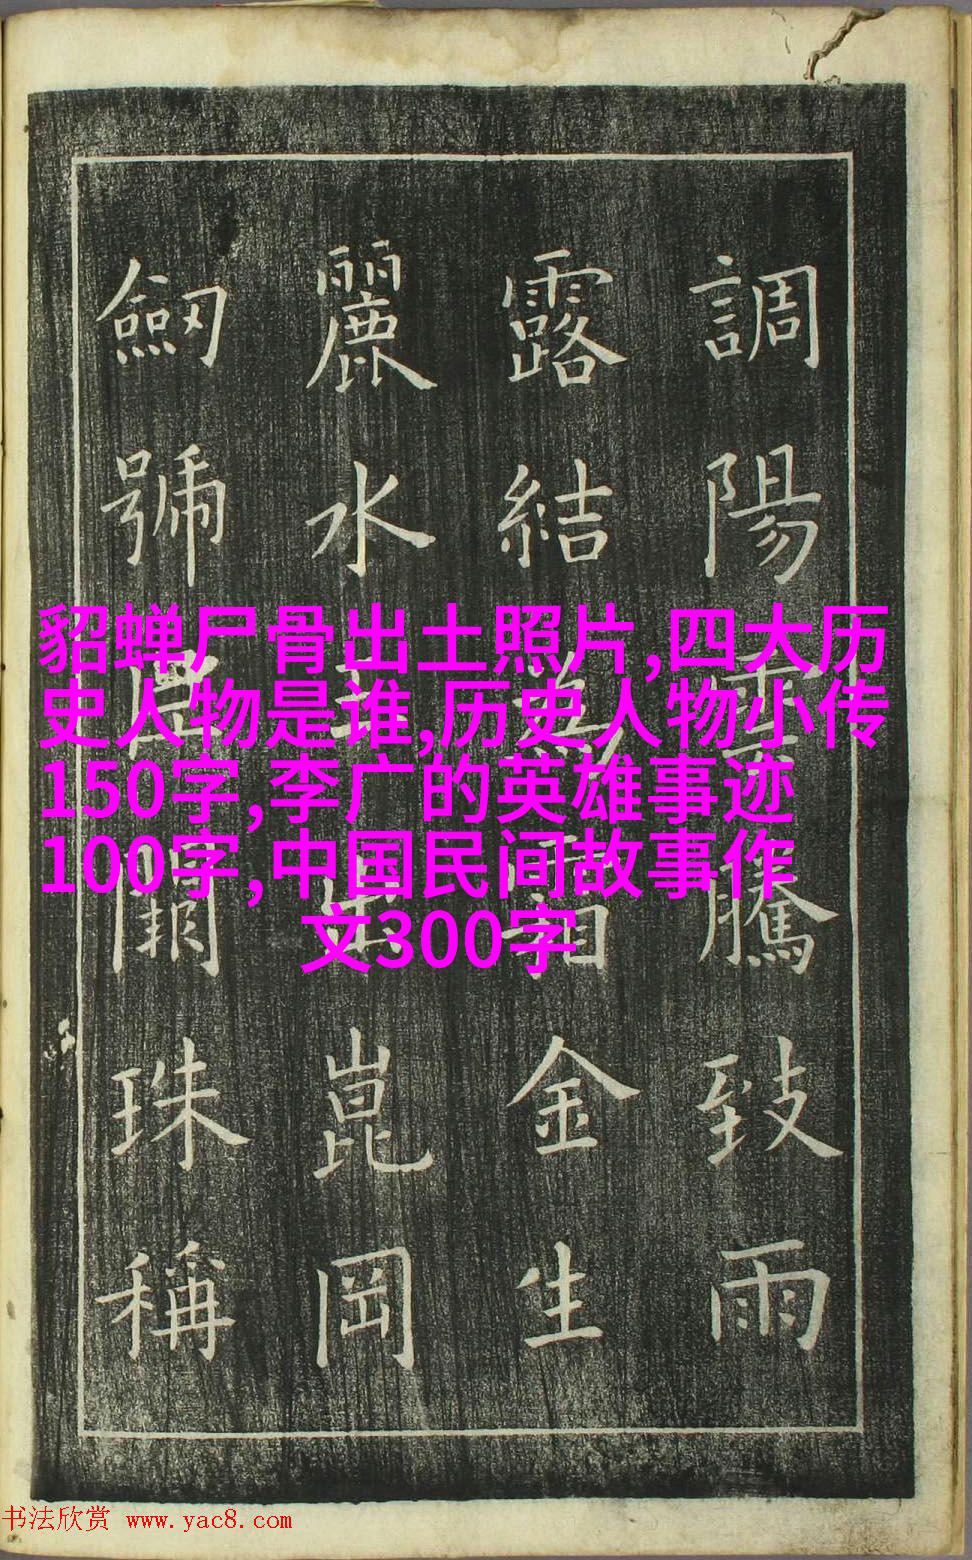 調陽雲騰致雨
露結為霜金生
麗水玉出崑岡
劒號巨闕珠稱
貂蝉尸骨出土照片,四大历
史人物是谁,历史人物小传
150字,李广的英雄事迹
100字,中国民间故事作
文300字
书法欣赏 www.yac8.com